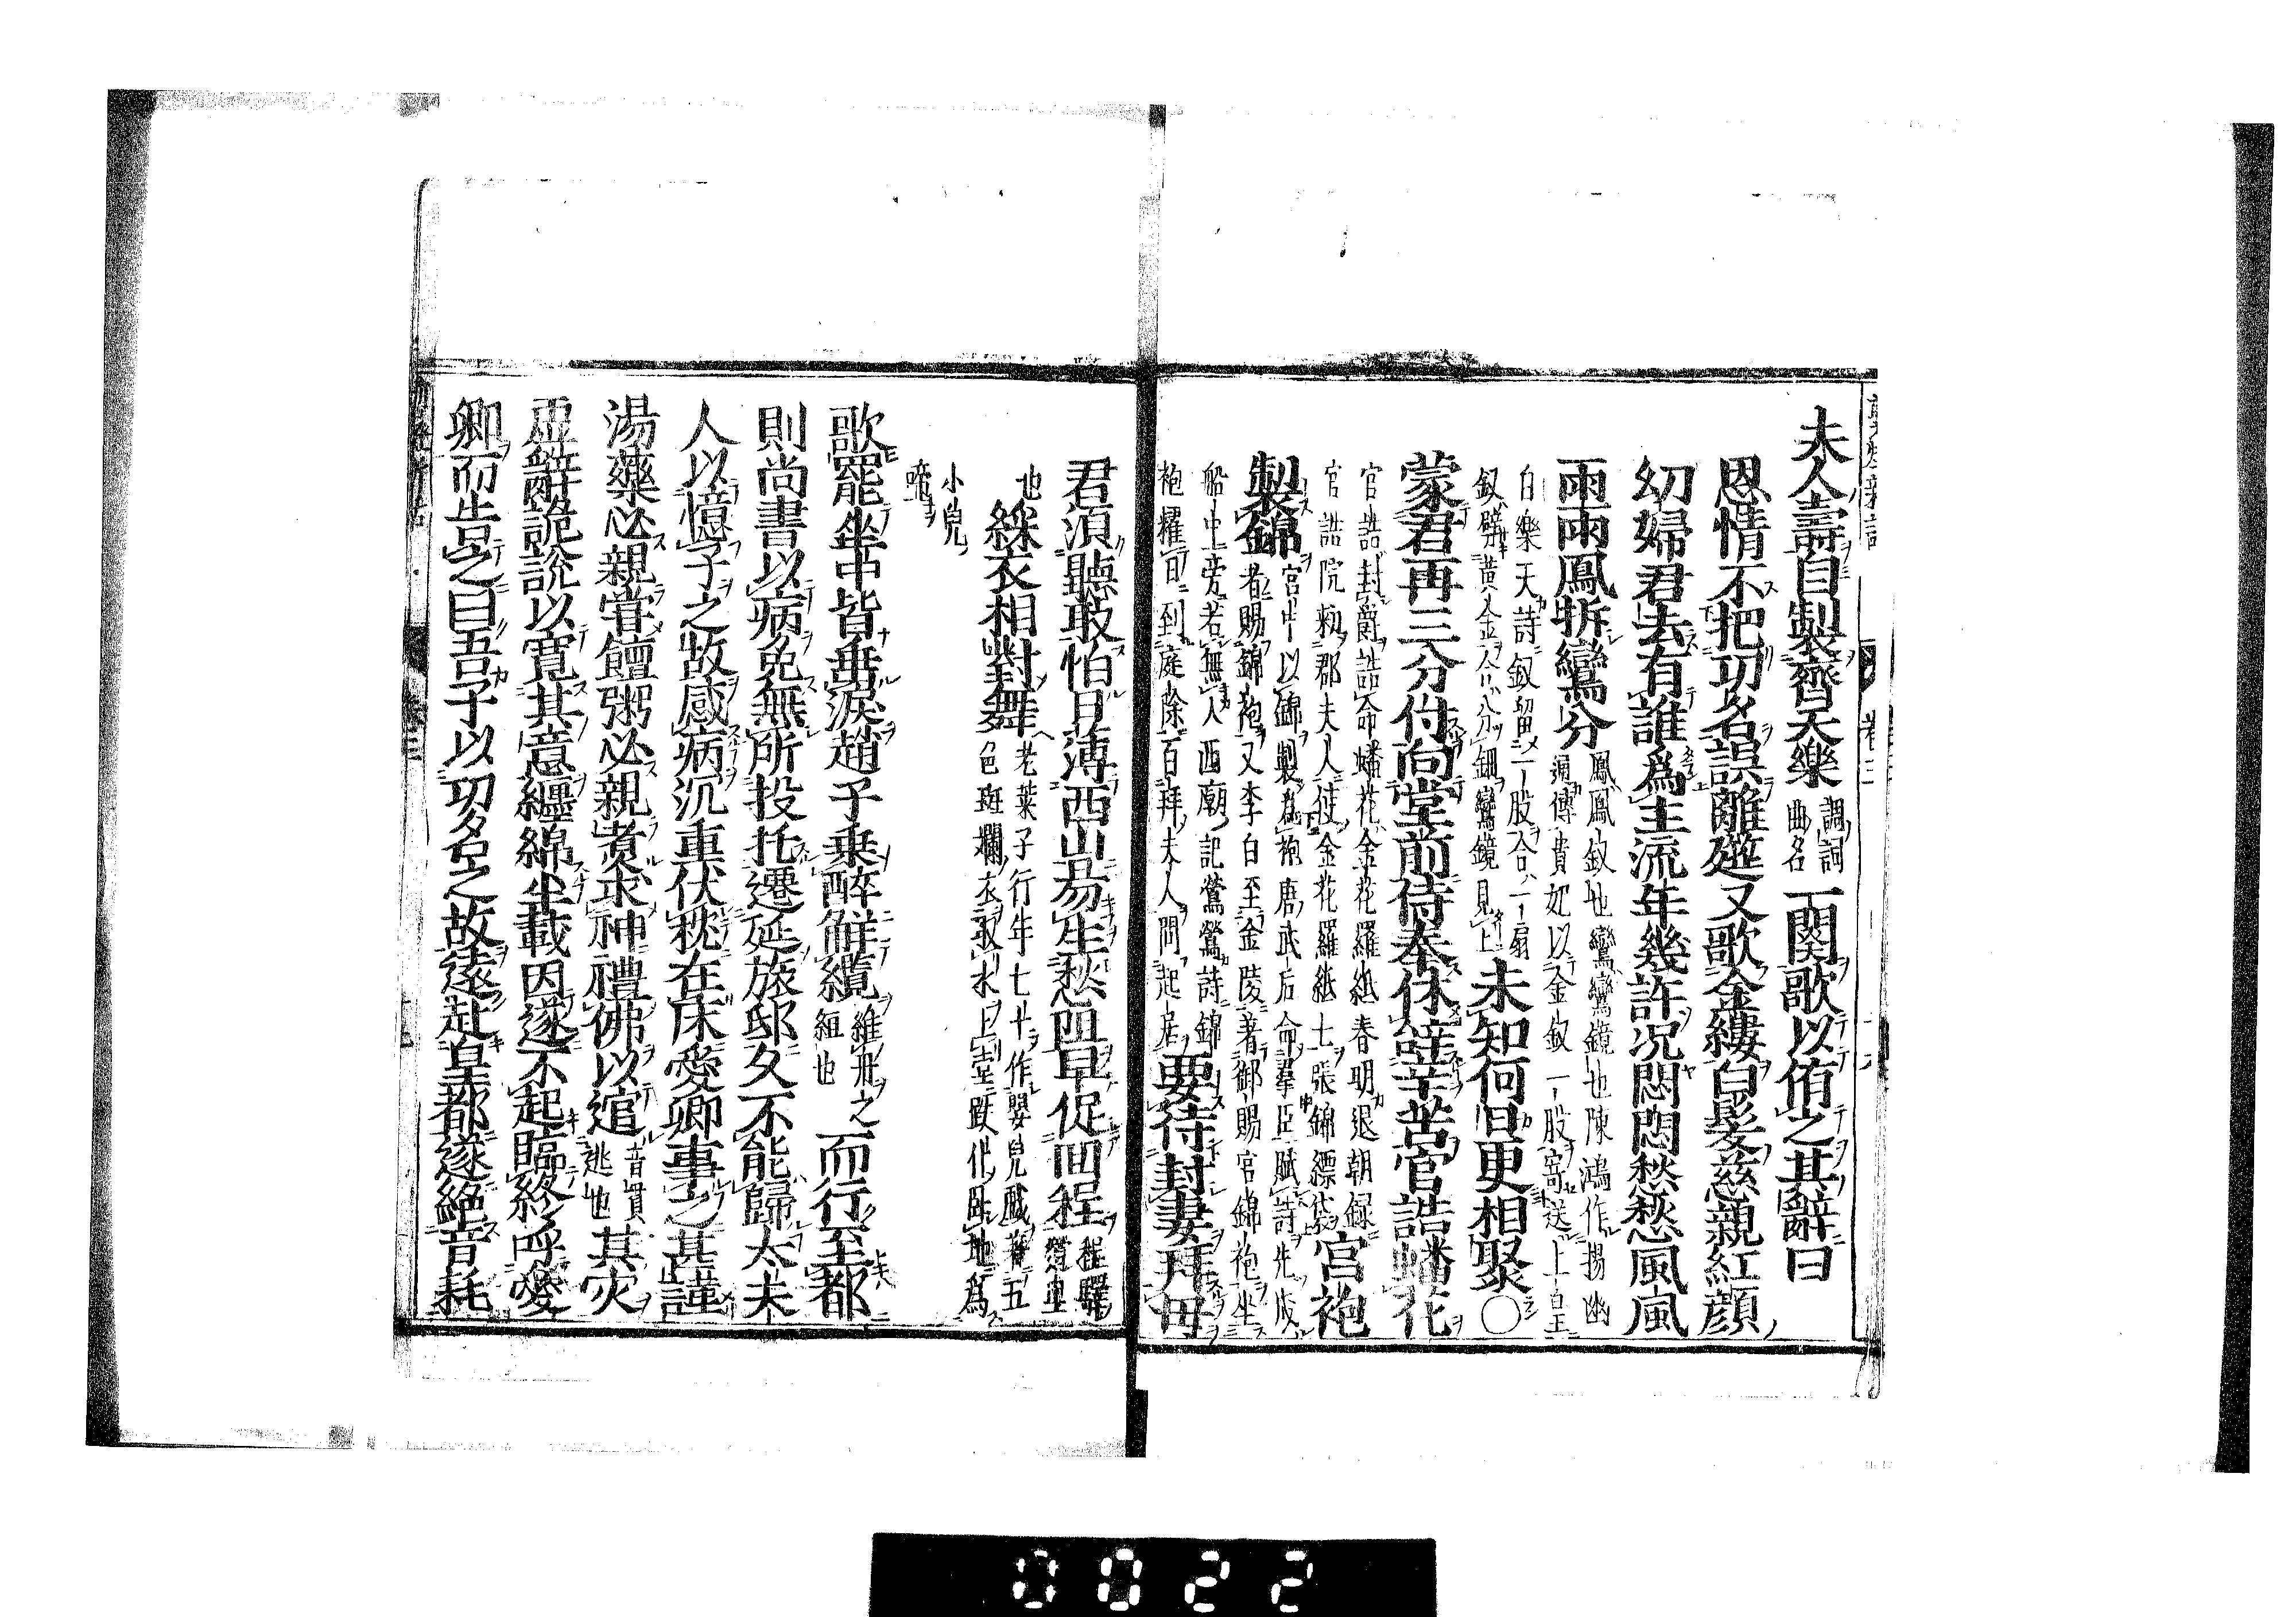 夫人壽自製齊天樂調詞曲名一闋歌以侑之其辭曰
恩情不把功名誤離筵又歌金縷白髮慈親紅顔
幼婦君去有誰爲主流年幾許况悶悶愁愁風風
雨雨鳳拆鸞分鳳鳳釵也鸞鸞鏡也陳鴻作揚幽通傳貴妃以金釵一股寄送上皇
白樂天詩釵留一股合一扇釵擘黃金合分鈿鸞鏡見上未知何日更相聚○
蒙君再三分付向堂前侍奉休辭辛苦官誥蟠花
官誥封爵誥命蟠花金花羅紙春明退朝録官誥院勑郡夫人使金花羅紙七張錦褾袋宮袍
製錦宮中以錦製爲袍唐武后命羣臣賦詩先成者賜錦袍又李白至金陵著御賜宮錦袍坐
船中旁若無人西廂記鶯鶯詩錦袍耀日到庭除百拜夫人問起居要待封妻拜母
君湏聽敢怕日薄西山易生愁阻早促回程程驛
也綵衣相對舞老莱子行年七十作嬰兒戲著五色斑斕衣取水上堂跌仆臥地爲
小兒啼
歌罷坐中皆垂淚趙子乗醉觧纜維舟之組也而行至都
則尚書以病免無所投托遷延旅邸久不能歸太夫
人以憶子之故感病沉重伏枕在床愛卿事之甚謹
湯藥必親嘗饘粥必親煮求神禮佛以逭音貫逃也其灾
虚辭詭說以寛其意纏綿半載因遂不起臨終呼愛
卿而告之曰吾子以功名之故遠赴皇都遂絶音耗